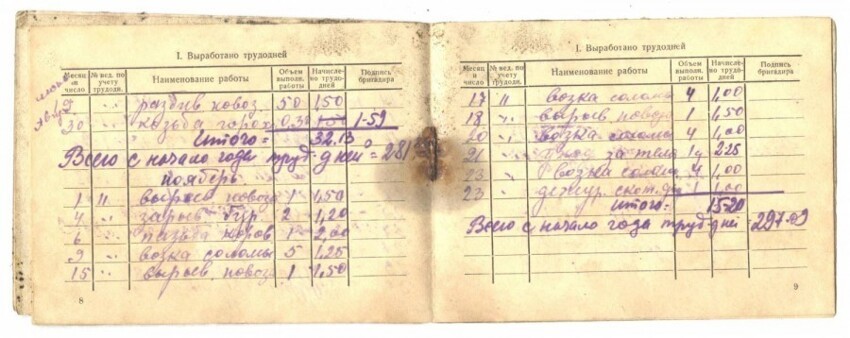 I. Выработано трудодней
Месяц и число № вед. по учету трудодн. Наименование работы Объем выполн. работы Начисле- но трудо- дней Подпись бригадира
2 " разбив навоз 50 1,50
30 " 1-59
Итого= 32.13
Всего с начало года труд. дней = 281
ноябрь
1 " 1 1,50
4 " 2 1,20
6 " 1 2,00
9 " возка соломы 5 1,25
15 " вырыв. навоз 1 1,50
8
I. Выработано трудодней
Месяц и число № вед. по учету трудодн. Наименование работы Объем выполн. работы Начисле- но трудо- дней Подпись бригадира
17 " возка солома 4 1,00
18 " вырыв навоза 1 1,50
20 " возка соломы 4 1,00
21 " за теля 2.25
23 " возка солома 4 1,00
23 " дежур. скот. 1 1,00
Итого= 15-20
Всего с начало года труд-дней= 297.09
9